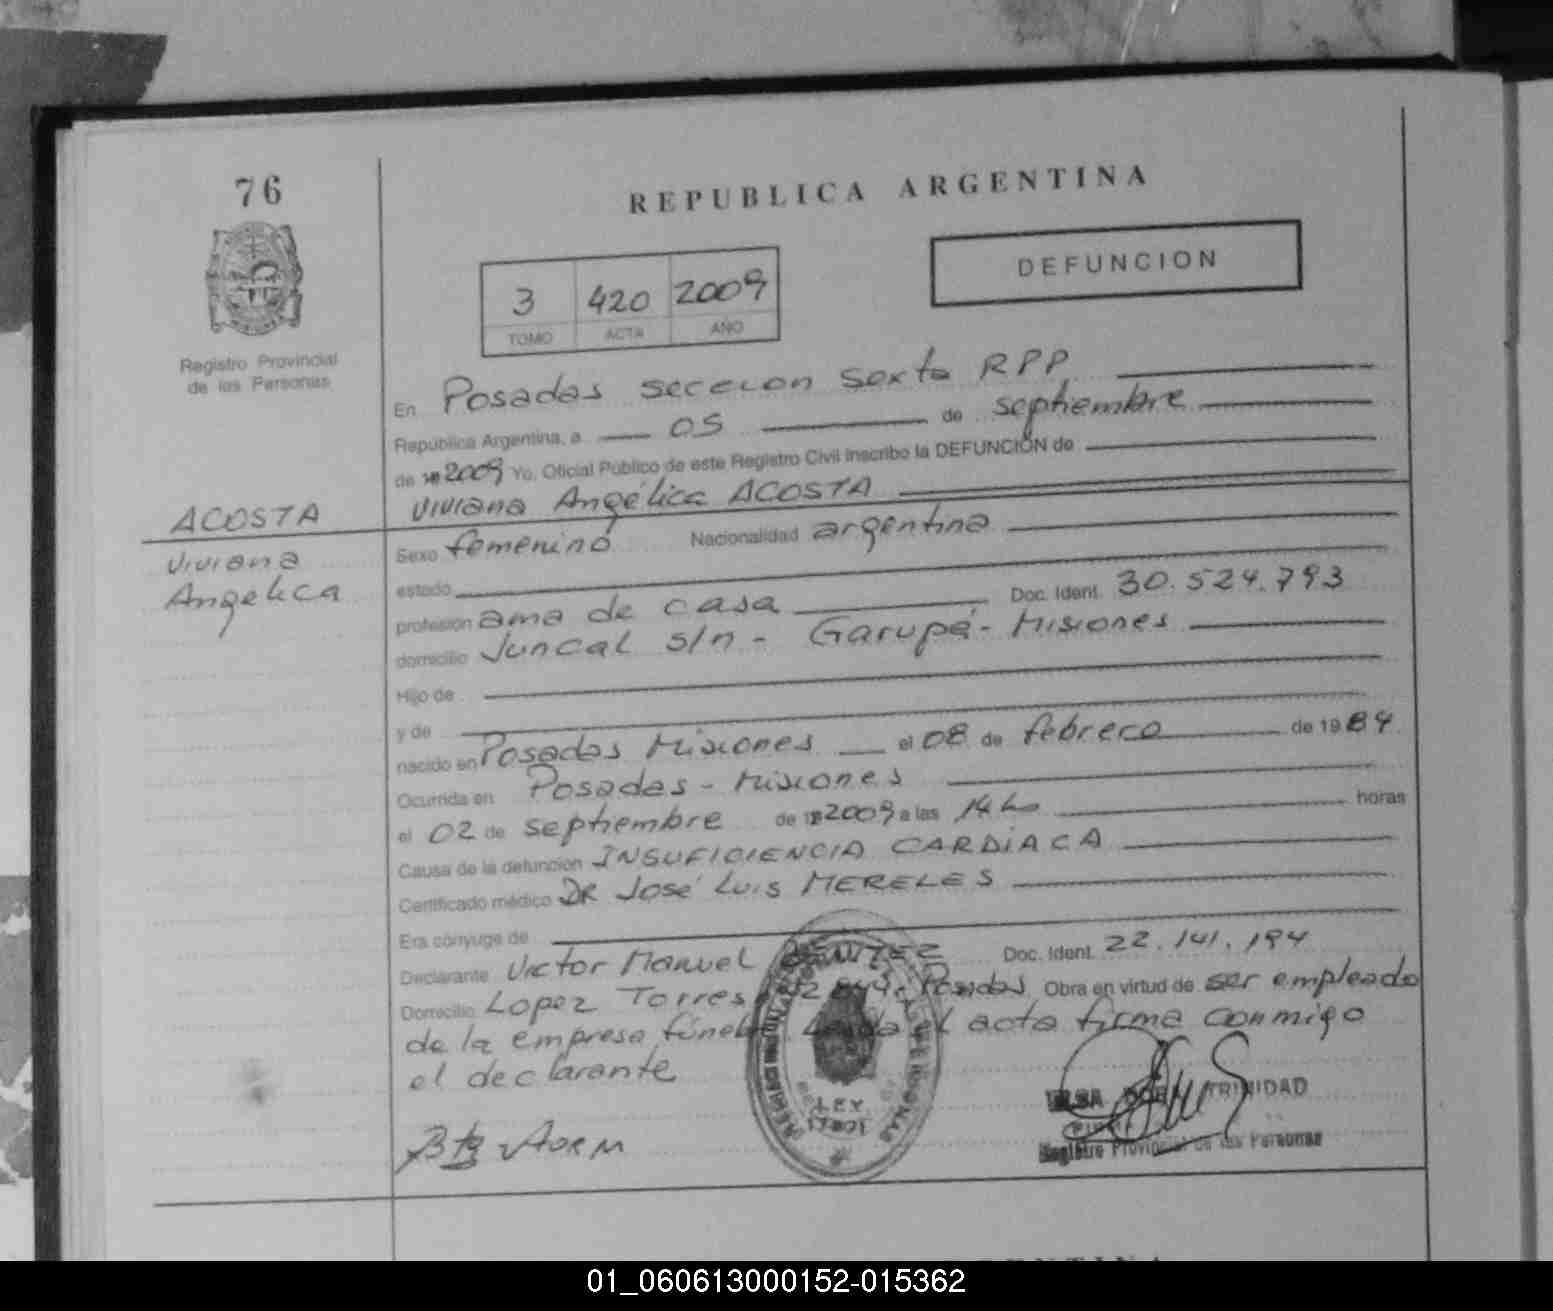 76
REPUBLICA ARGENTINA
DEFUNCION
3 420 2009
TOMO ACTA AÑO
Registro Provincial
de las Personas
En Posadas seccion sexta RPP
República Argentina, a 05 de septiembre
de 2009 Yo, Oficial Público de este Registro Civil inscribo la DEFUNCIÓN de
ACOSTA
Viviana Angélica ACOSTA
Viviana
Angélica
Sexo femenino Nacionalidad argentina
estado
profesión ama de casa Doc. Ident. 30.524.793
domicilio Juncal s/n - Garupá - Misiones
Hijo de
y de
nacido en Posadas Misiones el 08 de febrero de 1984
Ocurrida en Posadas - Misiones
el 02 de septiembre de 2009 a las 14 hs horas
Causa de la defunción INSUFICIENCIA CARDIACA
Certificado médico DR José Luis MERELES
Era cónyuge de
Declarante Victor Manuel BENITEZ Doc. Ident. 22.141.194
Domicilio Lopez Torres Posadas Obra en virtud de ser empleado
de la empresa fúnebre. Leída el acta firma conmigo
el declarante
TRINIDAD
Registro Provincial de las Personas
01_060613000152-015362